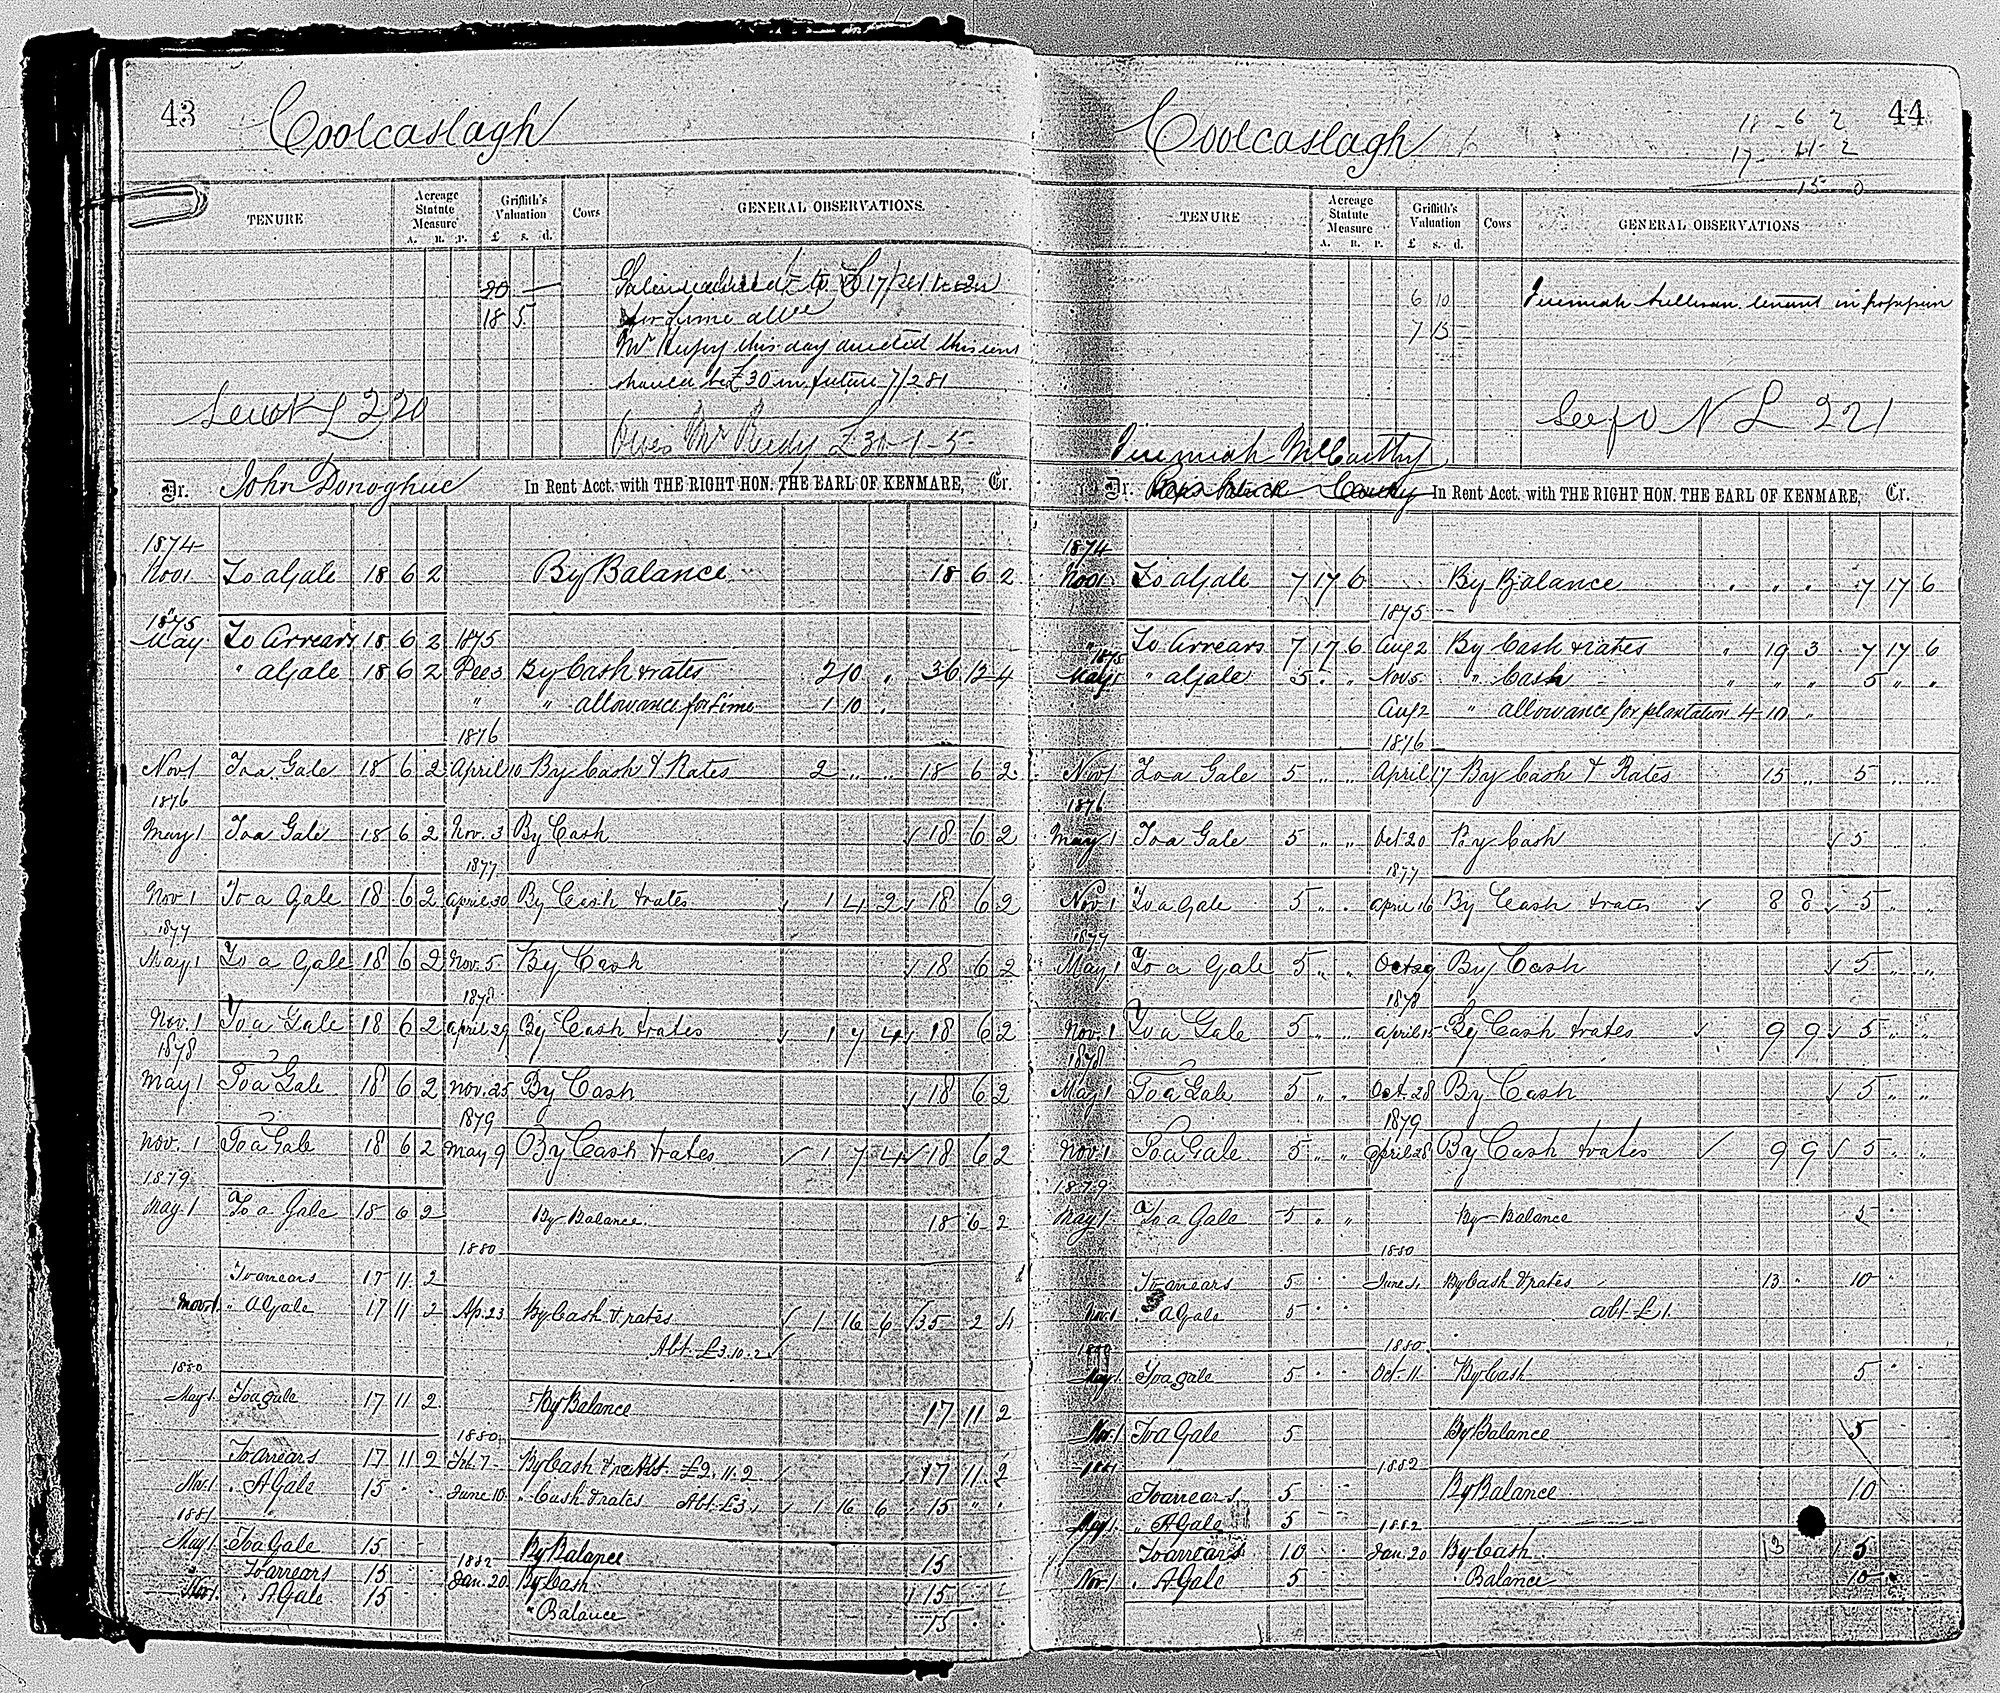 43
Coolcaslagh
TENURE
Acreage Statute Measure
A. R. P.
Griffith's Valuation
£ s. d.
Cows
GENERAL OBSERVATIONS.
20 —
18 5
for Lime allce
Mr Hussey this day directed this rent
should be £30 in future 7/2 81
L 220
Owes Mr Reidy £30-1-5
Dr. John Donoghue In Rent Acct. with THE RIGHT HON. THE EARL OF KENMARE, Cr.
1874
Nov 1 To a Gale 18 6 2 By Balance 18 6 2
1875
May To Arrears 18 6 2 1875
" a Gale 18 6 2 Dec 3 By Cash & rates 2 10 " 36 12 4
" " allowance for Lime 1 10 "
1876
Nov 1 To a Gale 18 6 2 April 10 By Cash & Rates 2 " " 18 6 2
1876
May 1 To a Gale 18 6 2 Nov. 3 By Cash ✓ 18 6 2
1877
Nov 1 To a Gale 18 6 2 April 30 By Cash & rates ✓ 1 4 2 ✓ 18 6 2
1877
May 1 To a Gale 18 6 2 Nov. 5 By Cash ✓ 18 6 2
1878
Nov. 1 To a Gale 18 6 2 April 29 By Cash & rates ✓ 1 7 4 ✓ 18 6 2
1878
May 1 To a Gale 18 6 2 Nov. 25 By Cash ✓ 18 6 2
1879
Nov. 1 To a Gale 18 6 2 May 9 By Cash & rates ✓ 1 7 4 ✓ 18 6 2
1879
May 1 To a Gale 18 6 2 By Balance 18 6 2
1880
To arrears 17 11 2
Nov 1 " A Gale 17 11 2 Ap. 23 By Cash & rates ✓ 1 16 6 ✓ 35 2 4
Abt. £3.10.2 ✓
1880
May 1 To a gale 17 11 2 By Balance 17 11 2
1880
To arrears 17 11 2 Feb. 7 By Cash & Abt. £2.11.2 17 11 2
Nov. 1 " A Gale 15 June 10 " Cash & rates Abt. £3 ✓ 1 16 6 ✓ 15 " "
1881
May 1 To a Gale 15 By Balance 15
1882
To arrears 15 Jan. 20 By Cash 15
Nov 1 " A Gale 15 " Balance 15
44
Coolcaslagh
18 - 6 2
17 - 11 - 2
15 0
TENURE
Acreage Statute Measure
A. R. P.
Griffith's Valuation
£ s. d.
Cows
GENERAL OBSERVATIONS
6 10 Jeremiah Sullivan tenant in
7 15
See fo N L 221
Jeremiah McCarthy
Dr. In Rent Acct. with THE RIGHT HON. THE EARL OF KENMARE, Cr.
1874
Nov 1 To a Gale 7 17 6 By Balance " " " 7 17 6
1875
To Arrears 7 17 6 Aug 2 By Cash & rates " 19 3 7 17 6
1875
May 1 " a Gale 5 " " Nov 5 " Cash " " " 5 " "
Aug 2 " allowance for plantation 4 10 "
1876
Nov 1 To a Gale 5 " " April 17 By Cash & Rates 15 " 5 " "
1876
May 1 To a Gale 5 " " Oct 20 By Cash ✓ 5 " "
1877
Nov 1 To a Gale 5 " " April 16 By Cash & rates ✓ 8 8 ✓ 5 " "
1877
May 1 To a Gale 5 " " Oct 29 By Cash ✓ 5 " "
1878
Nov. 1 To a Gale 5 " " April 15 By Cash & rates ✓ 9 9 ✓ 5 " "
1878
May 1 To a Gale 5 " " Oct. 28 By Cash ✓ 5 " "
1879
Nov. 1 To a Gale 5 " " April 28 By Cash & rates ✓ 9 9 ✓ 5 " "
1879
May 1 To a Gale 5 " " By Balance 5 "
1880
To arrears 5 " " June 4 By Cash & rates 13 " 10 "
Nov. 1 " a Gale 5 " " abt. £1.
1880 1880
May 1 To a gale 5 " " Oct. 11 By Cash 5 " "
Nov. 1 To a Gale 5 By Balance 5
1881 1882
To arrears 5 By Balance 10
May 1 " A Gale 5 1882
To arrears 10 Jan. 20 By Cash 13 5
Nov 1 " A Gale 5 " Balance 10